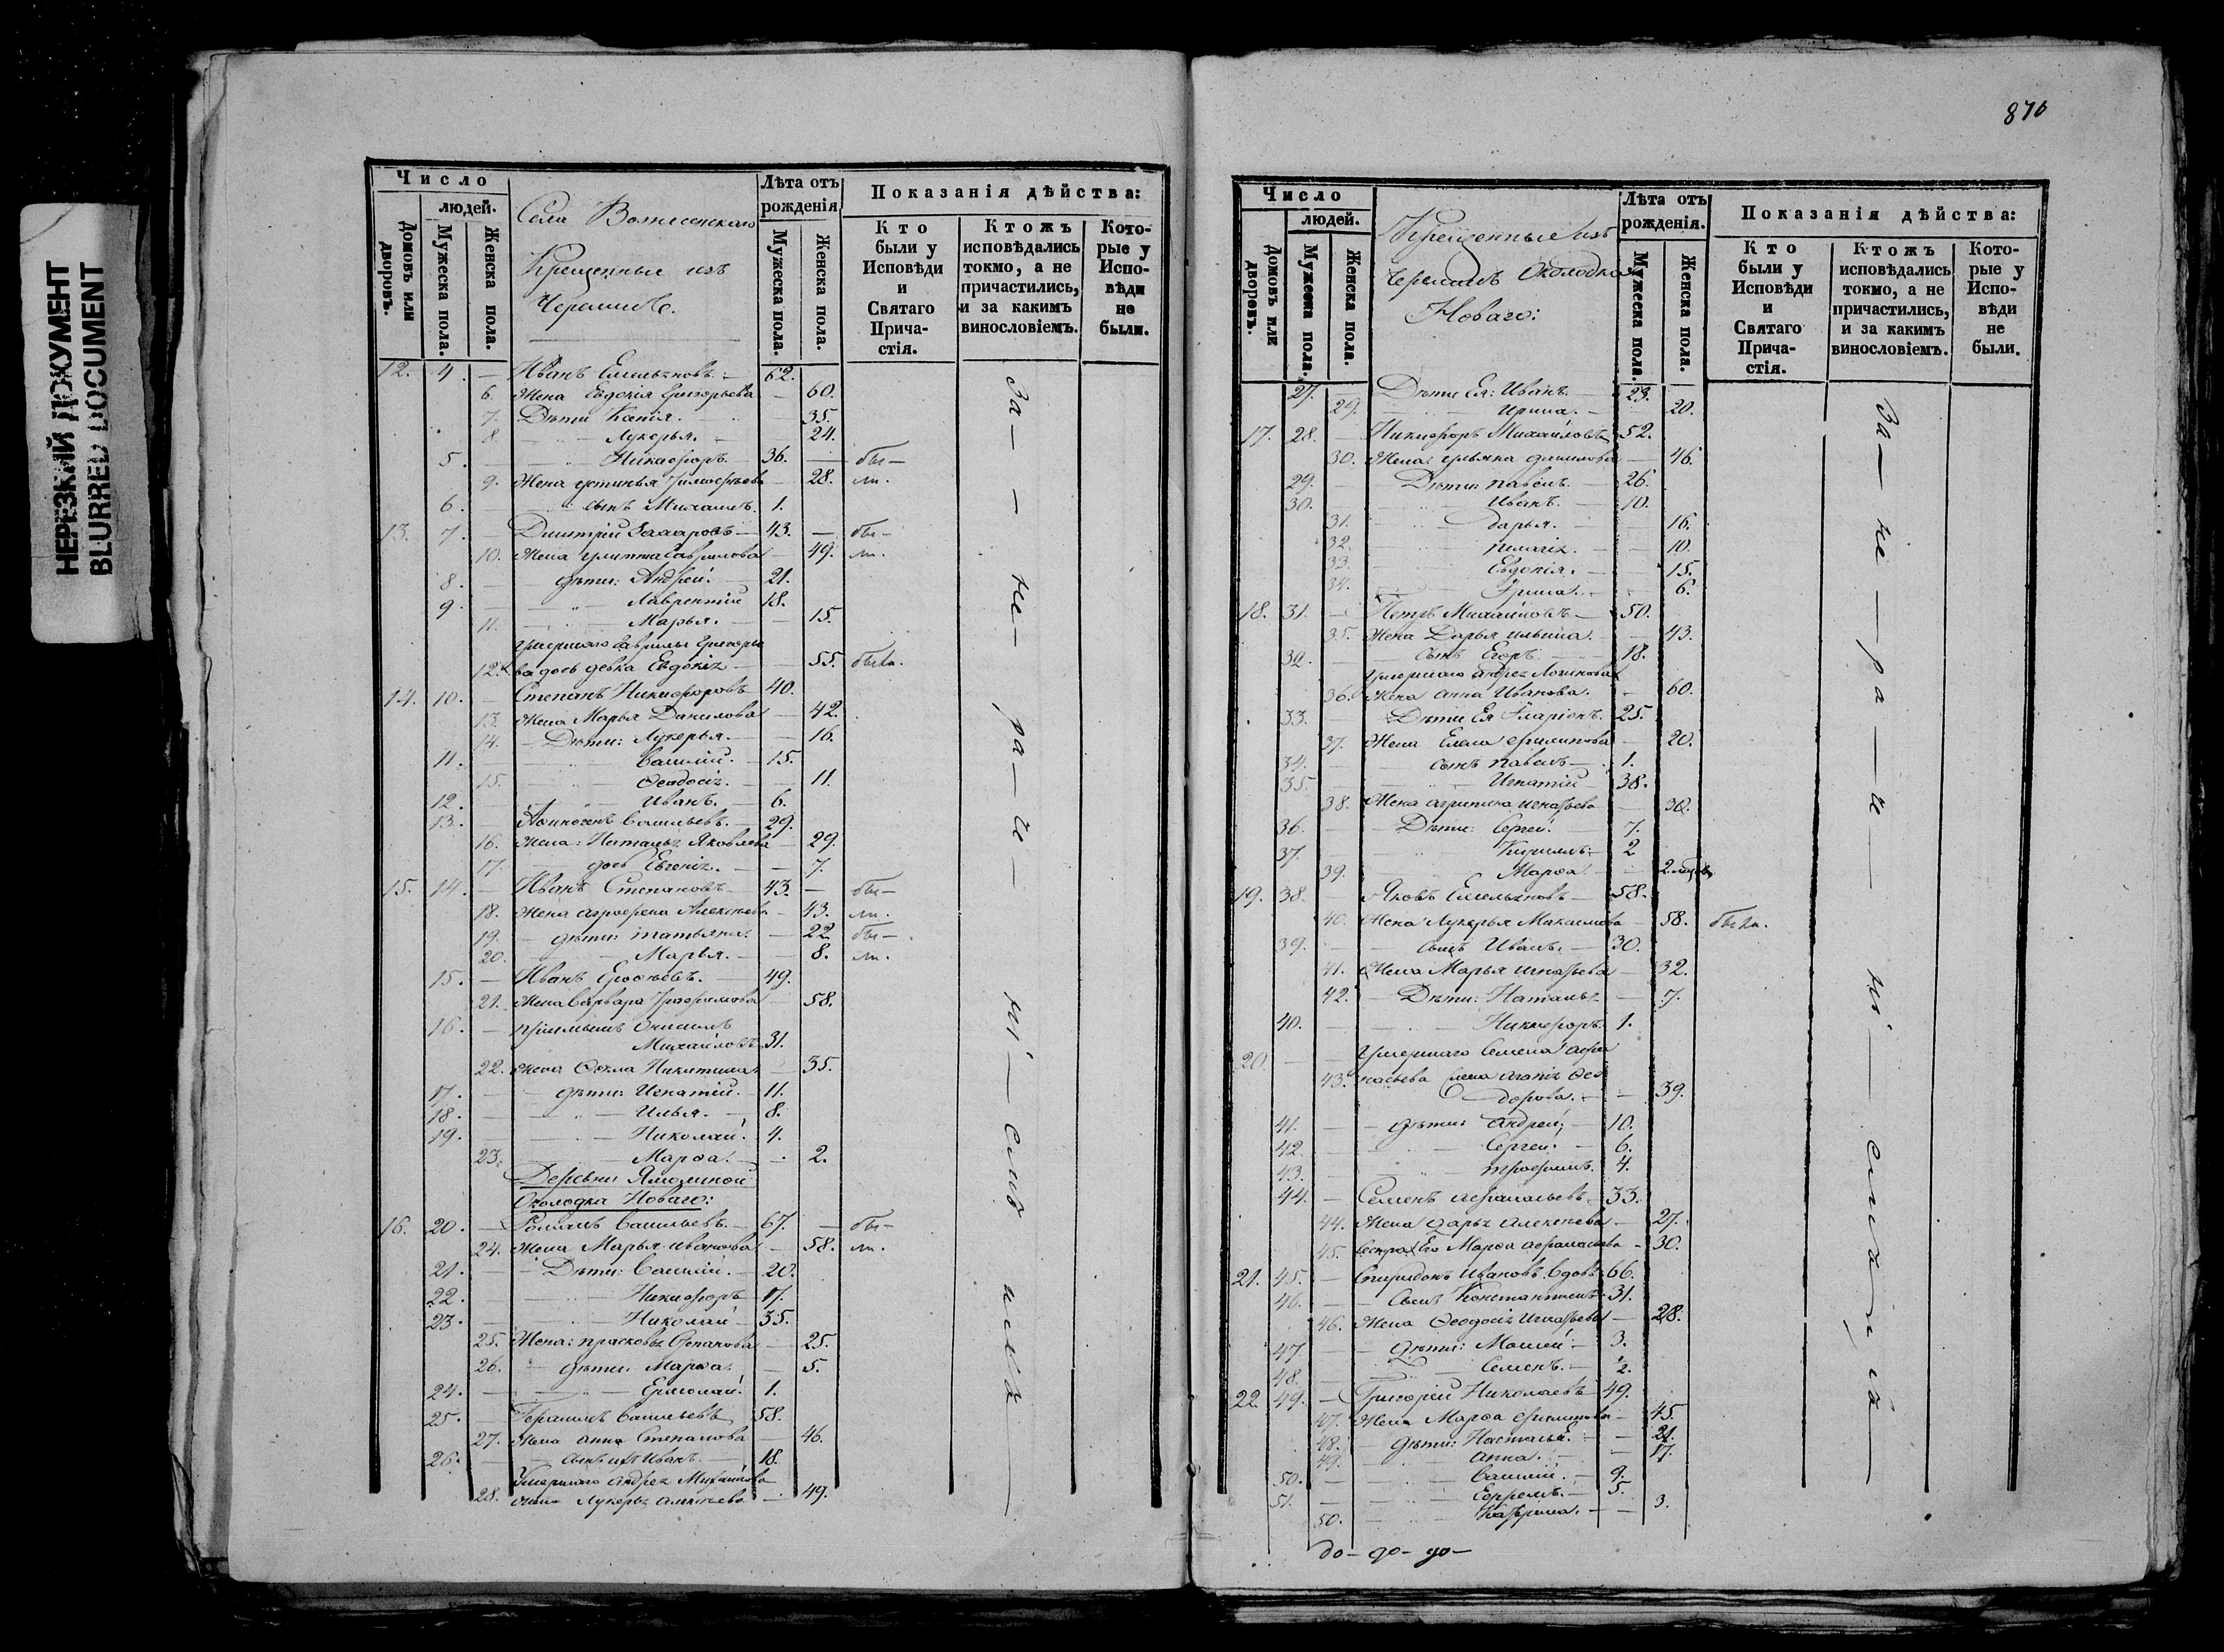 НЕРЕЗКИЙ ДОКУМЕНТ
BLURRED DOCUMENT
Число
людей.
Домовъ или дворовъ.
Мужеска пола.
Женска пола.
Села Вознесенскаго
Крещенные изъ
Черемисъ.
Лѣта отъ рожденія
Мужеска пола.
Женска пола.
Показанія дѣйства:
Кто были у Исповѣди и Святаго Причастія.
Ктожъ исповѣдались токмо, а не причастились, и за какимъ винословіемъ.
Которые у Исповѣди не были.
12. 4. — Иванъ Емельяновъ — 62.
6. Жена Евдокія Григорьева — 60.
7. Дѣти 35.
8. Лукерья. — 24.
5. Никифоръ. — 36. — бы—
9. Жена Устинья Тимофѣева — 28. ли.
6. сынъ Михаилъ. 1.
13. 7. — Дмитрій Захаровъ — 43. — бы—
10. Жена Гаврилова — 49. ли.
8. — дѣти: Андрей. — 21.
9. — Лаврентій 18.
11. — Марья. — 15.
Умершаго Гаврилы Григорье
12. ва дочь девка Евдокія — 55. была.
14. 10. — Степанъ Никифоровъ 40.
13. Жена Марья Данилова — 42.
14. — Дѣти: Лукерья. — 16.
11. Василій. — 15.
15. Ѳеодосія. — 11.
12. Иванъ. — 6.
13. Васильевъ. — 29.
16. Жена: Наталья Яковлева — 29.
17. дочь Евгенія. — 7.
15. 14. — Иванъ Степановъ — 43. — бы—
18. Жена Агрофена Алексѣева — 43. ли.
19. — дѣти: Татьяна. — 22 бы—
20. — Марья. — 8. ли.
15. — Иванъ Ерофѣевъ. — 49.
21. Жена Варвара Трофимова — 58.
16. — пріимышъ
Михайловъ 31.
22. Жена Ѳекла Никитина — 35.
17. — дѣти: Игнатій. — 11.
18. — Илья. — 8.
19. — Николай. 4.
23. Марѳа. — 2.
Деревни
Околодка Новаго:
16. 20. — Романъ Васильевъ. — 67. — бы—
24. Жена Марья Иванова — 58. ли.
21. — Дѣти: Василій. — 20.
22. — Никифоръ — 17.
23. — Николай — 35.
25. Жена: Прасковья Степанова — 25.
26. — дѣти: Марѳа. — 5.
24. — Ермолай. 1.
25. — Герасимъ Васильевъ 58.
27. Жена Анна Степанова — 46.
26. — сынъ ихъ Иванъ. — 18.
Умершаго Андрея Михайлова
28. жена Лукерья Алексѣева — 49.
за — не — ра — че — ні — емъ
870
Число
людей.
Домовъ или дворовъ.
Мужеска пола.
Женска пола.
Крещенные изъ
Черемисъ Околодка
Новаго:
Лѣта отъ рожденія.
Мужеска пола.
Женска пола.
Показанія дѣйства:
Кто были у Исповѣди и Святаго Причастія.
Ктожъ исповѣдались токмо, а не причастились, и за какимъ винословіемъ.
Которые у Исповѣди не были.
27. — Дѣти Ея: Иванъ. — 23.
29. Ирина. — 20.
17. 28. — Никифоръ Михайловъ 52.
30. Жена: Ульяна — 46.
29. — Дѣти: Павелъ. — 26.
30. Иванъ. — 10.
31. Дарья. — 16.
32. Пелагія. — 10.
33. Евдокія. — 15.
34. Ирина. 6.
18. 31. — Петръ Михайловъ — 50.
35. Жена Дарья Ильина. — 43.
32. — сынъ Егоръ. — 18.
Умершаго Андрея Логинова
36. Жена Анна Иванова. — 60.
33. — Дѣти Ея Иларіонъ. 25.
37. Жена Елена Филипова — 20.
34. — сынъ Павелъ — 1.
35. Игнатій 38.
38. Жена Агрипина Игнатьева 38.
36. — Дѣти: Сергей. — 7.
37. Кирилъ: 2
39. Марѳа. —
19. 38. — Яковъ Емельяновъ — 58.
40. Жена Лукерья Максимова — 58. была.
39. — сынъ Иванъ. — 30.
41. Жена Марья Игнатьева — 32.
42. — Дѣти: Наталья — 7.
40. — Никифоръ. 1.
20. — Умершаго Семена Афа
43. насьева жена Агапія Ѳео
дорова. — 39.
41. — дѣти: Андрей; — 10.
42. — Сергей. — 6.
43. Трофимъ. 4.
44. — Семенъ Афанасьевъ. 33.
44. Жена Дарья Алексѣева — 27.
45. Сестра Его Марѳа Афанасьева — 30.
21. 45. — Спиридонъ Ивановъ. вдовъ 66.
46. — Сынъ Константинъ. 31.
46. Жена Ѳеодосія Игнатьева — 28.
47. — дѣти: Моисей — 3.
48. Семенъ. — 2.
22. 49. — Григорій Николаевъ 49.
47. Жена Марѳа Филипова — 45.
48. — дѣти: Настасья. — 21.
49. Анна. — 17.
50. — Василій. — 9.
51. — Ефремъ. — 5.
50. — Катерина. — 3.
за — не — ра — че — ні — емъ
до — до — до —